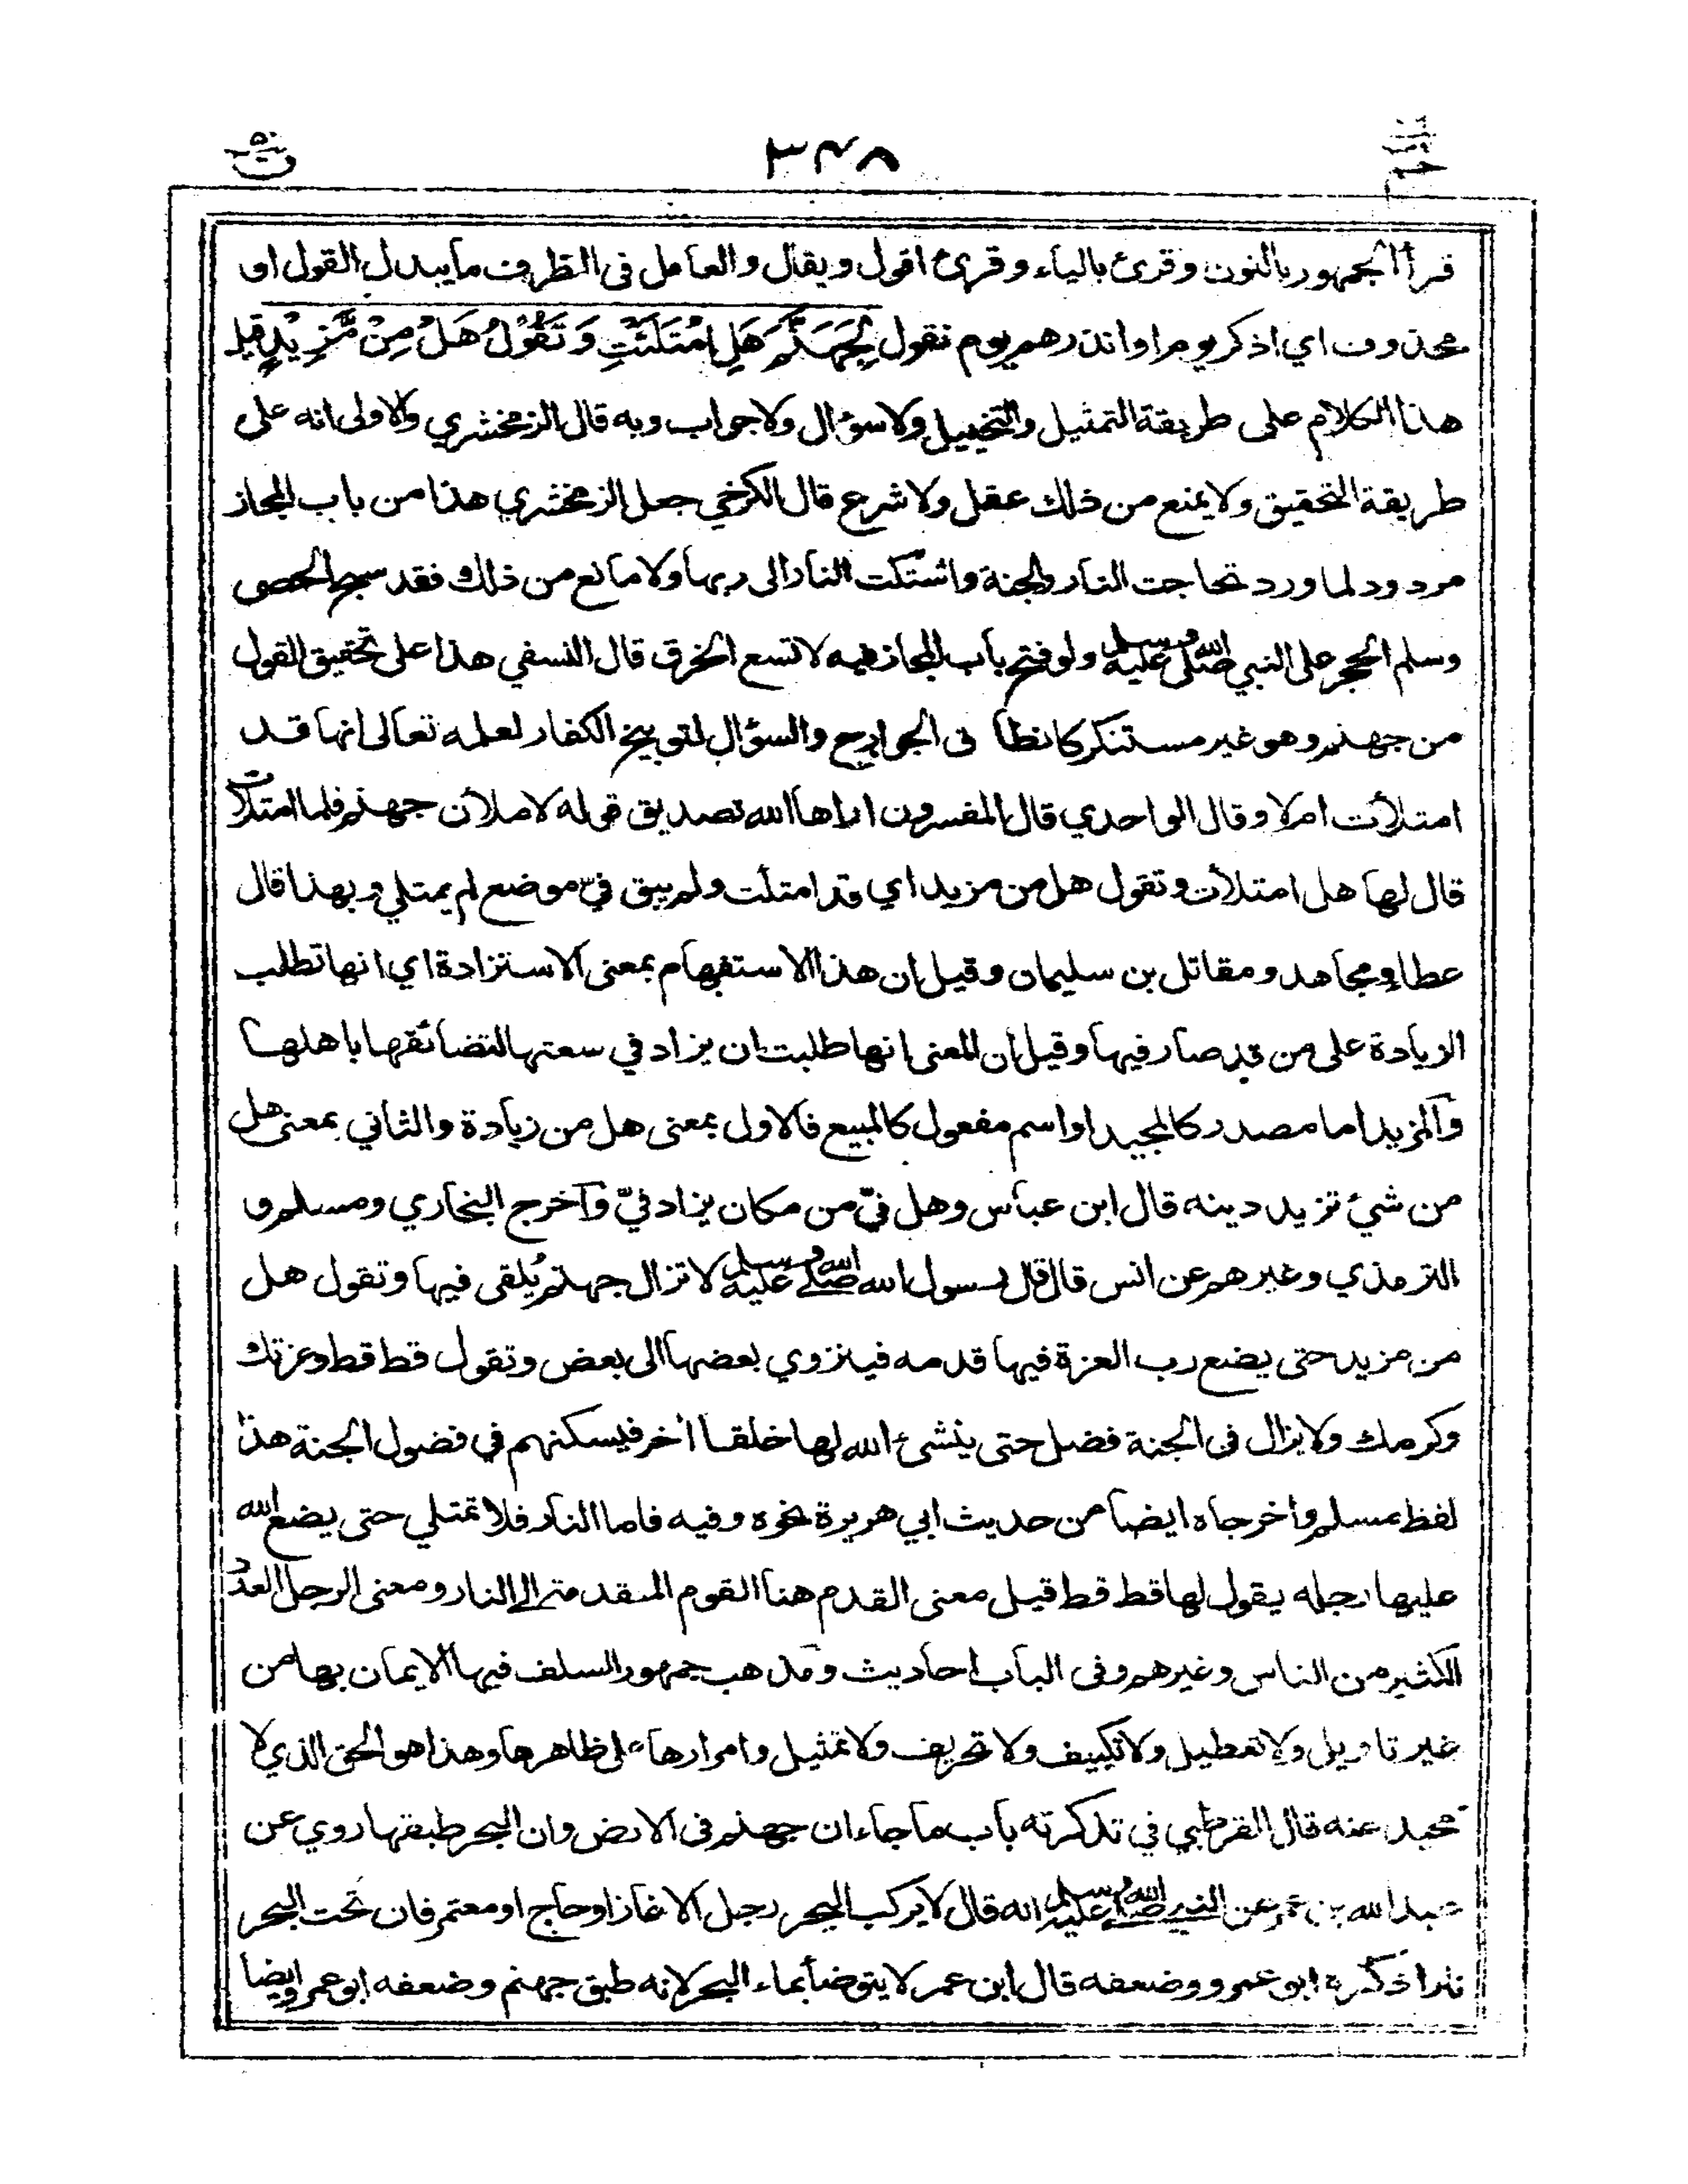 حم ٣٤٨ ق
قرأ الجمهور بالنون وقرئ بالياء وقرئ اقول ويقال والعامل فى الظرف ما يبدل القول او
محذوف اي اذكر يوم او انذرهم يوم نقول لِجَهَنَّمَ هَلِ امْتَلَئْتِ وَتَقُوْلُ هَلْ مِنْ مَّزِيْدٍ قيل
هذا الكلام على طريقة التمثيل والتخييل ولا سؤال ولا جواب وبه قال الزمخشري والاولى انه على
طريقة التحقيق ولا يمنع من ذلك عقل ولا شرع قال الكرخي جعل الزمخشري هذا من باب المجاز
مردود لما ورد تحاجت النار والجنة واشتكت النار الى ربها ولا مانع من ذلك فقد سبح الحصى
وسلم الحجر على النبي صلى الله عليه وسلم ولو فتح باب المجاز فيه لاتسع الخرق قال النسفي هذا على تحقيق القول
من جهنم وهو غير مستنكر كانطاق الجوارح والسؤال لتوبيخ الكفار لعلمه تعالى انها قد
امتلأت ام لا وقال الواحدي قال المفسرون اراها الله تصديق قوله لاملأن جهنم فلما امتلأت
قال لها هل امتلأت وتقول هل من مزيد اي قد امتلأت ولم يبق فيّ موضع لم يمتلي وبهذا قال
عطاء ومجاهد ومقاتل بن سليمان وقيل ان هذا الاستفهام بمعنى الاستزادة اي انها تطلب
الزيادة على من قد صار فيها وقيل ان المعنى انها طلبت ان يزاد في سعتها لتضائقها باهلها
والمزيد اما مصدر كالمجيد او اسم مفعول كالمبيع فالاول بمعنى هل من زيادة والثاني بمعنى هل
من شئ تزيدينه قال ابن عباس وهل فيّ من مكان يزاد فيّ وآخرج البخاري ومسلم و
الترمذي وغيرهم عن انس قال قال رسول الله صلى الله عليه وسلم لا تزال جهنم يُلقى فيها وتقول هل
من مزيد حتى يضع رب العزة فيها قدمه فينزوي بعضها الى بعض وتقول قط قط وعزتك
وكرمك ولا يزال فى الجنة فضل حتى ينشئ الله لها خلقا اخر فيسكنهم في فضول الجنة هذا
لفظ مسلم واخرجاه ايضا من حديث ابي هريرة نحوه وفيه فاما النار فلا تمتلي حتى يضع الله
عليها رجله يقول لها قط قط قيل معنى القدم هنا القوم المتقدمة الى النار ومعنى الرجل العدد
الكثير من الناس وغيرهم وفى الباب احاديث ومذهب جمهور السلف فيها الايمان بها من
غير تاويل ولا تعطيل ولا تكييف ولا تحريف ولا تمثيل وامرارها على ظاهرها وهذا هو الحق الذي لا
محيد عنه قال القرطبي في تذكرته باب ما جاء ان جهنم فى الارض وان البحر طبقها روي عن
عبد الله بن عمر عن النبي صلى الله عليه وسلم انه قال لا يركب البحر رجل الا غاز او حاج او معتمر فان تحت البحر
نارا ذكره ابو عمرو وضعفه قال ابن عمر لا يتوضأ بماء البحر لانه طبق جهنم وضعفه ابو عمرو ايضا